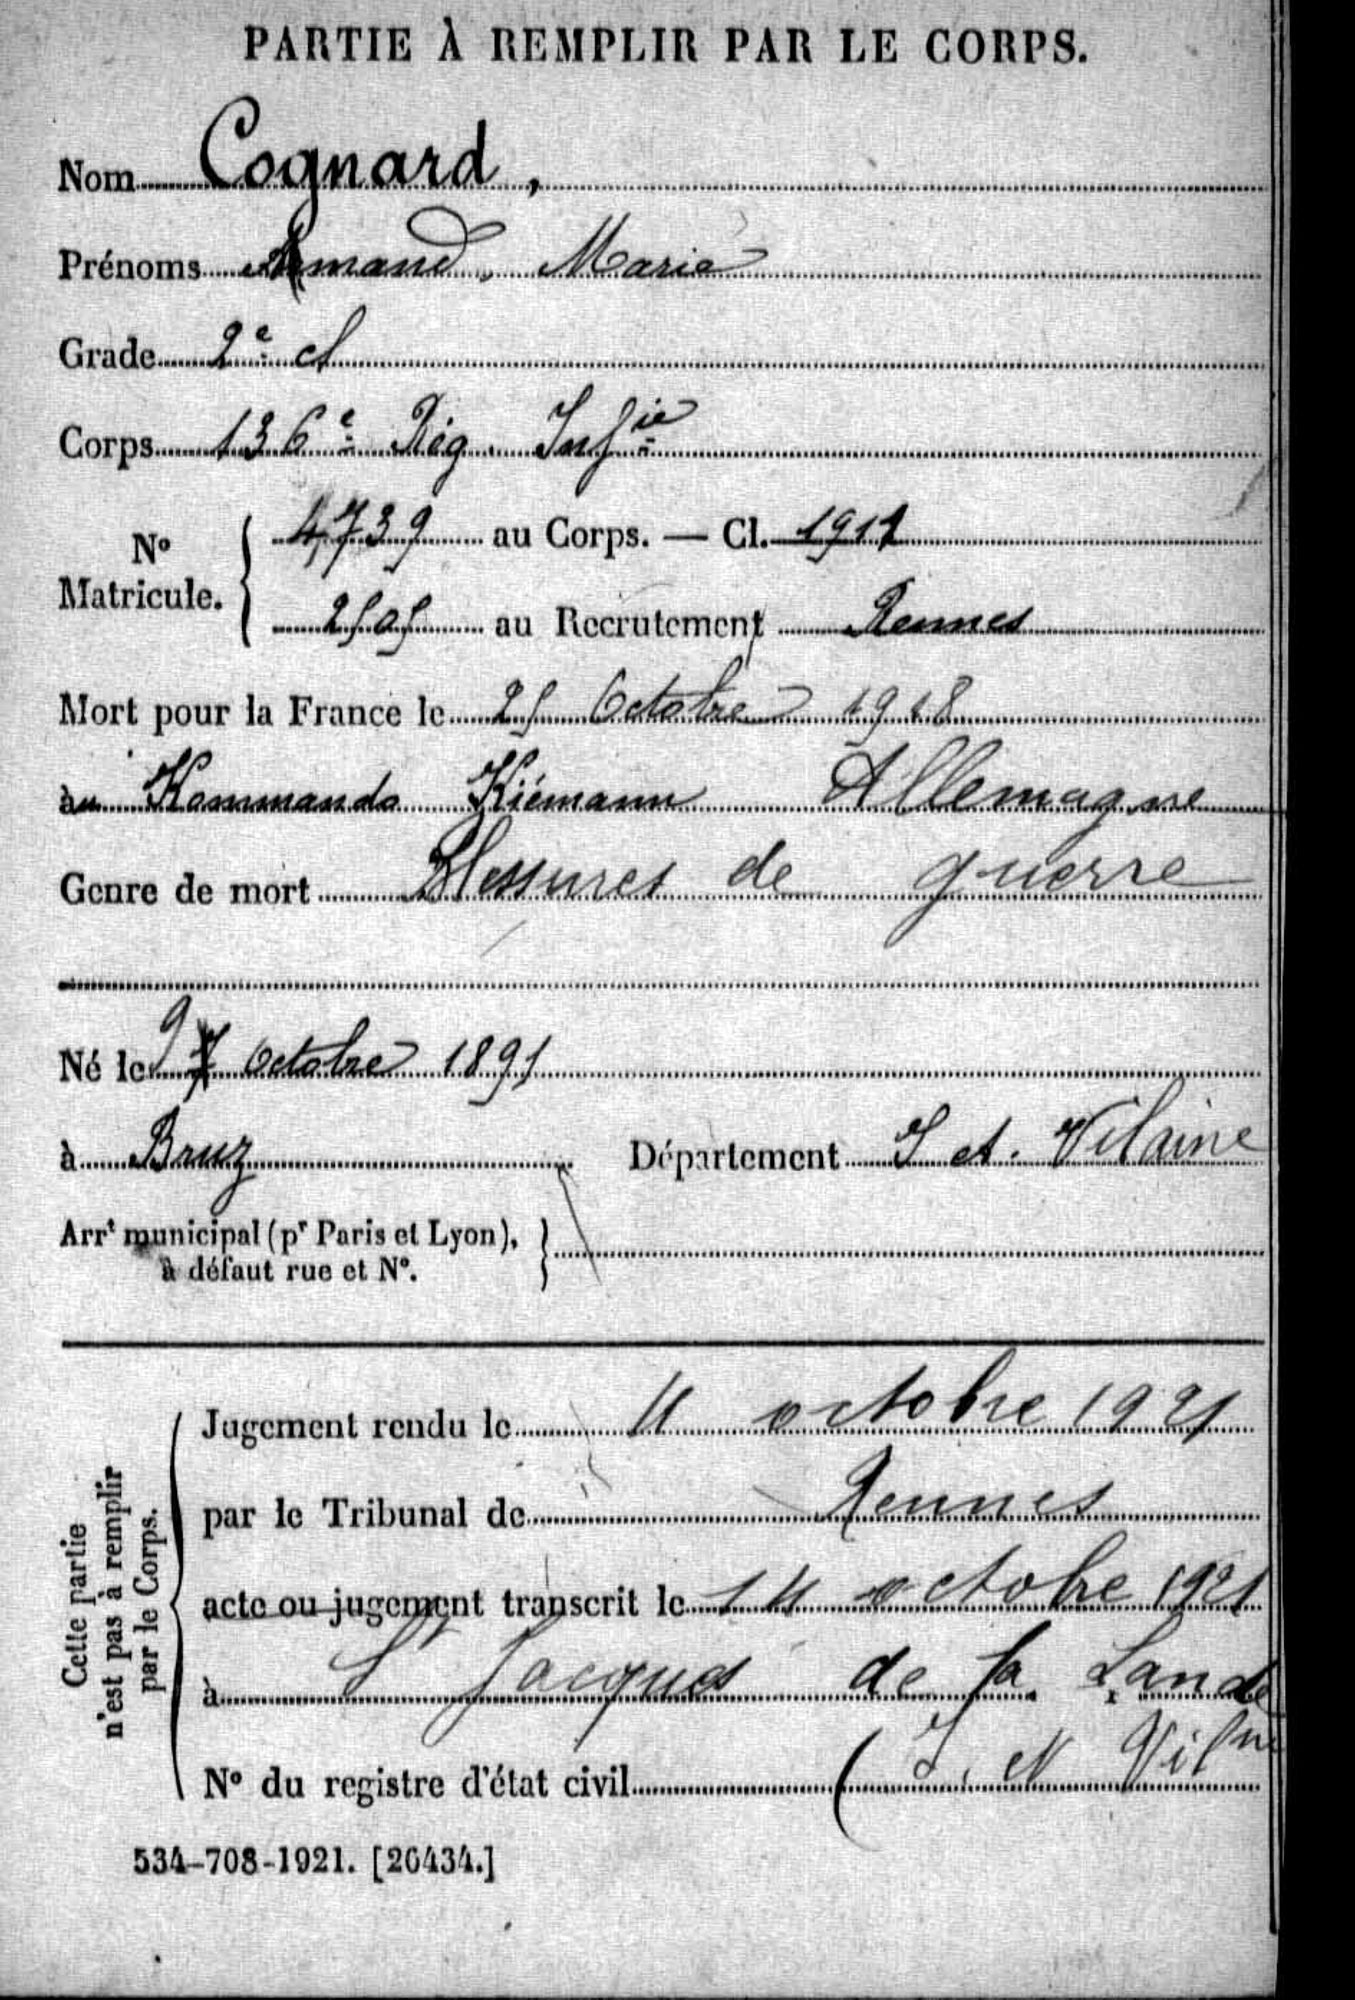 PARTIE À REMPLIR PAR LE CORPS.
Nom Cognard,
Prénoms Armand, Marie
Grade 2e cl
Corps 136e Rég. Infie
No Matricule. { 4739 au Corps. — Cl. 1911
2505 au Recrutement Rennes
Mort pour la France le 25 Octobre 1918
au Kommando Kiémann Allemagne
Genre de mort Blessures de guerre
Né le 9 Octobre 1891
à Bruz Département I et. Vilaine
Arrt municipal (pr Paris et Lyon),
à défaut rue et No.
Cette partie
n'est pas à remplir
par le Corps.
Jugement rendu le 11 octobre 1921
par le Tribunal de Rennes
acte ou jugement transcrit le octobre 1921
à St Jacques de la Lande
No du registre d'état civil (I. et Vilne
534-708-1921. [26434.]